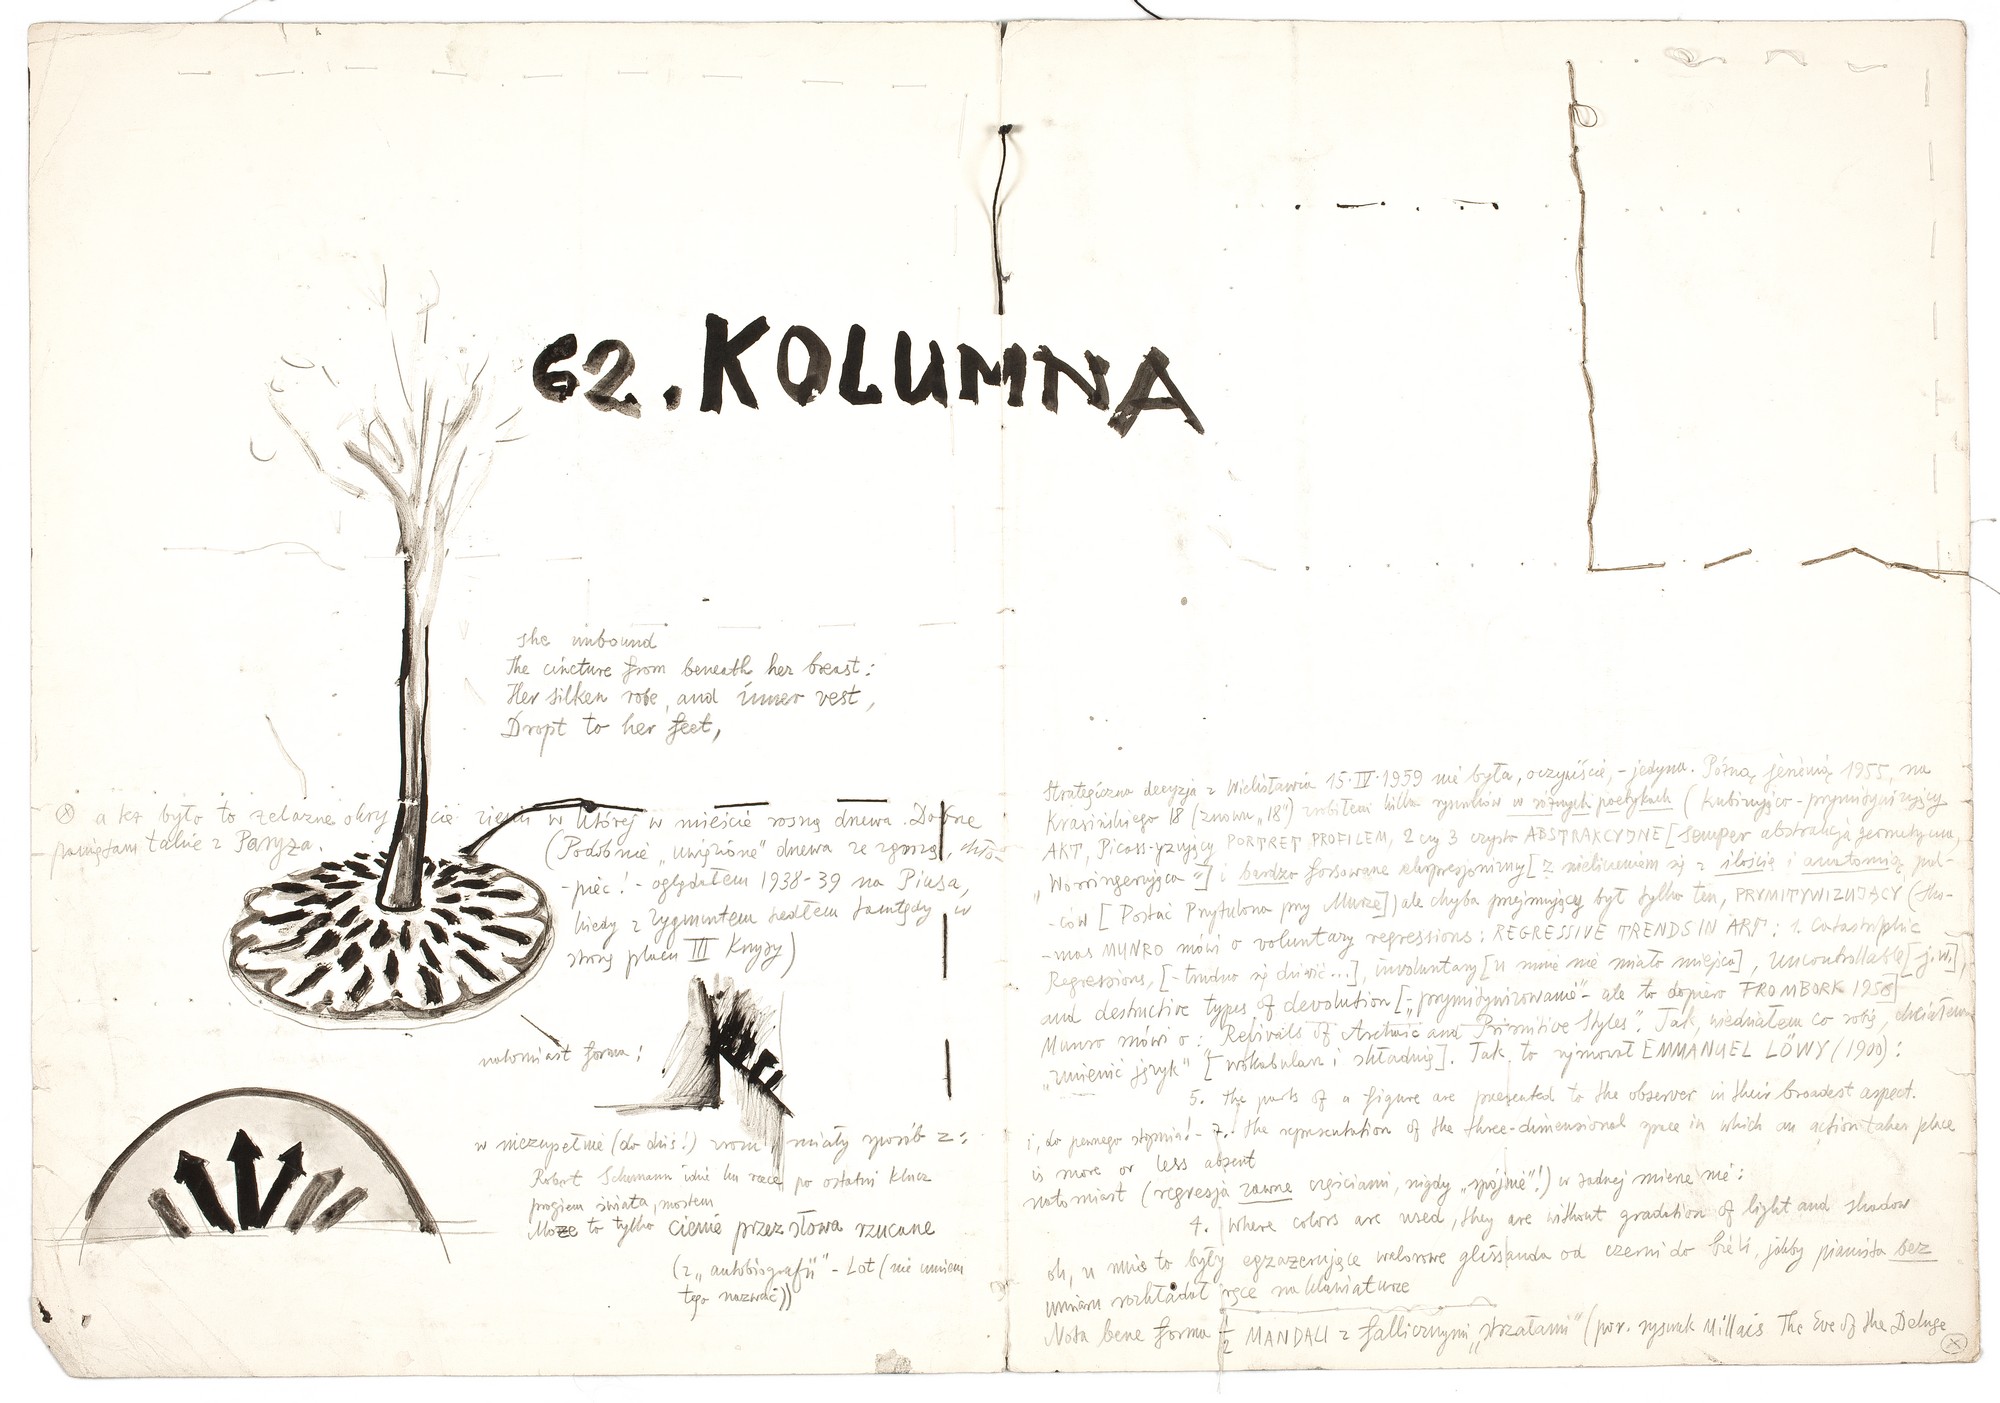 62. KOLUMNA
she unbound
The cincture from beneath her breast:
Her silken robe, and inner vest,
Dropt to her feet,
ⓧ a też było to żelazne okrycie ziemi w której w mieście rosną drzewa. Dobrze
pamiętam takie z Paryża.
(Podobnie „uwięzione" drzewa ze zgrozą,
-pięć! - oglądałem 1938-39 na Piusa,
kiedy z Zygmuntem szedłem tamtędy w
stronę placu III Krzyży)
natomiast forma:
w niezupełnie (do dziś!) zrozumiały sposób z:
Robert Schumann idzie ku rzece po ostatni klucz
progiem świata, mostem
Może to tylko cienie przez słowa rzucane
(z „autobiografii" - Lot (nie umiem
tego nazwać))
Strategiczna decyzja z Wielisławia 15·IV·1959 nie była, oczywiście, - jedyna. Późną jesienią 1955, na
Krasińskiego 18 (znowu „18") zrobiłem kilka rysunków w różnych poetykach (Kubizująco-prymitywizujący
AKT, Picass-yzujący PORTRET PROFILEM, 2 czy 3 czysto ABSTRAKCYJNE [semper abstrakcja geometryczna,
„Worringerująca"] i bardzo forsowane ekspresjonizmy [z nieliczeniem się z ilością i anatomią pal-
-ców [Postać Przytulona przy Murze]) ale chyba przejmujący był tylko ten, PRYMITYWIZUJĄCY (Tho-
-mas MUNRO mówi o voluntary regressions: REGRESSIVE TRENDS IN ART: 1. Catastrophic
Regressions, [- trudno się dziwić...], involuntary [u mnie nie miało miejsca], uncontrollable [j.w.],
and destructive types of devolution [- „prymitywizowanie" - ale to dopiero FROMBORK 1958]
Munro mówi o: „Revivals of Archaic and Primitive Styles". Tak, wiedziałem co robię, chciałem
„zmienić język" [wokabularz i składnię]. Tak to ujmował EMMANUEL LÖWY (1900):
5. the parts of a figure are presented to the observer in their broadest aspect.
i, do pewnego stopnia! - 7. the representation of the three-dimensional space in which an action takes place
is more or less absent
natomiast (regresja zawsze częściami, nigdy „spójnie"!) w żadnej mierze nie:
4. Where colors are used, they are without gradation of light and shadow
oh, u mnie to były egzagerujące walorowe glissanda od czerni do bieli, jakby pianista bez
umiaru rozkładał ręce na klawiaturze
Nota bene forma 1/2 MANDALI z fallicznymi „strzałami" (por. rysunek Millais The Eve of the Deluge
ⓧ